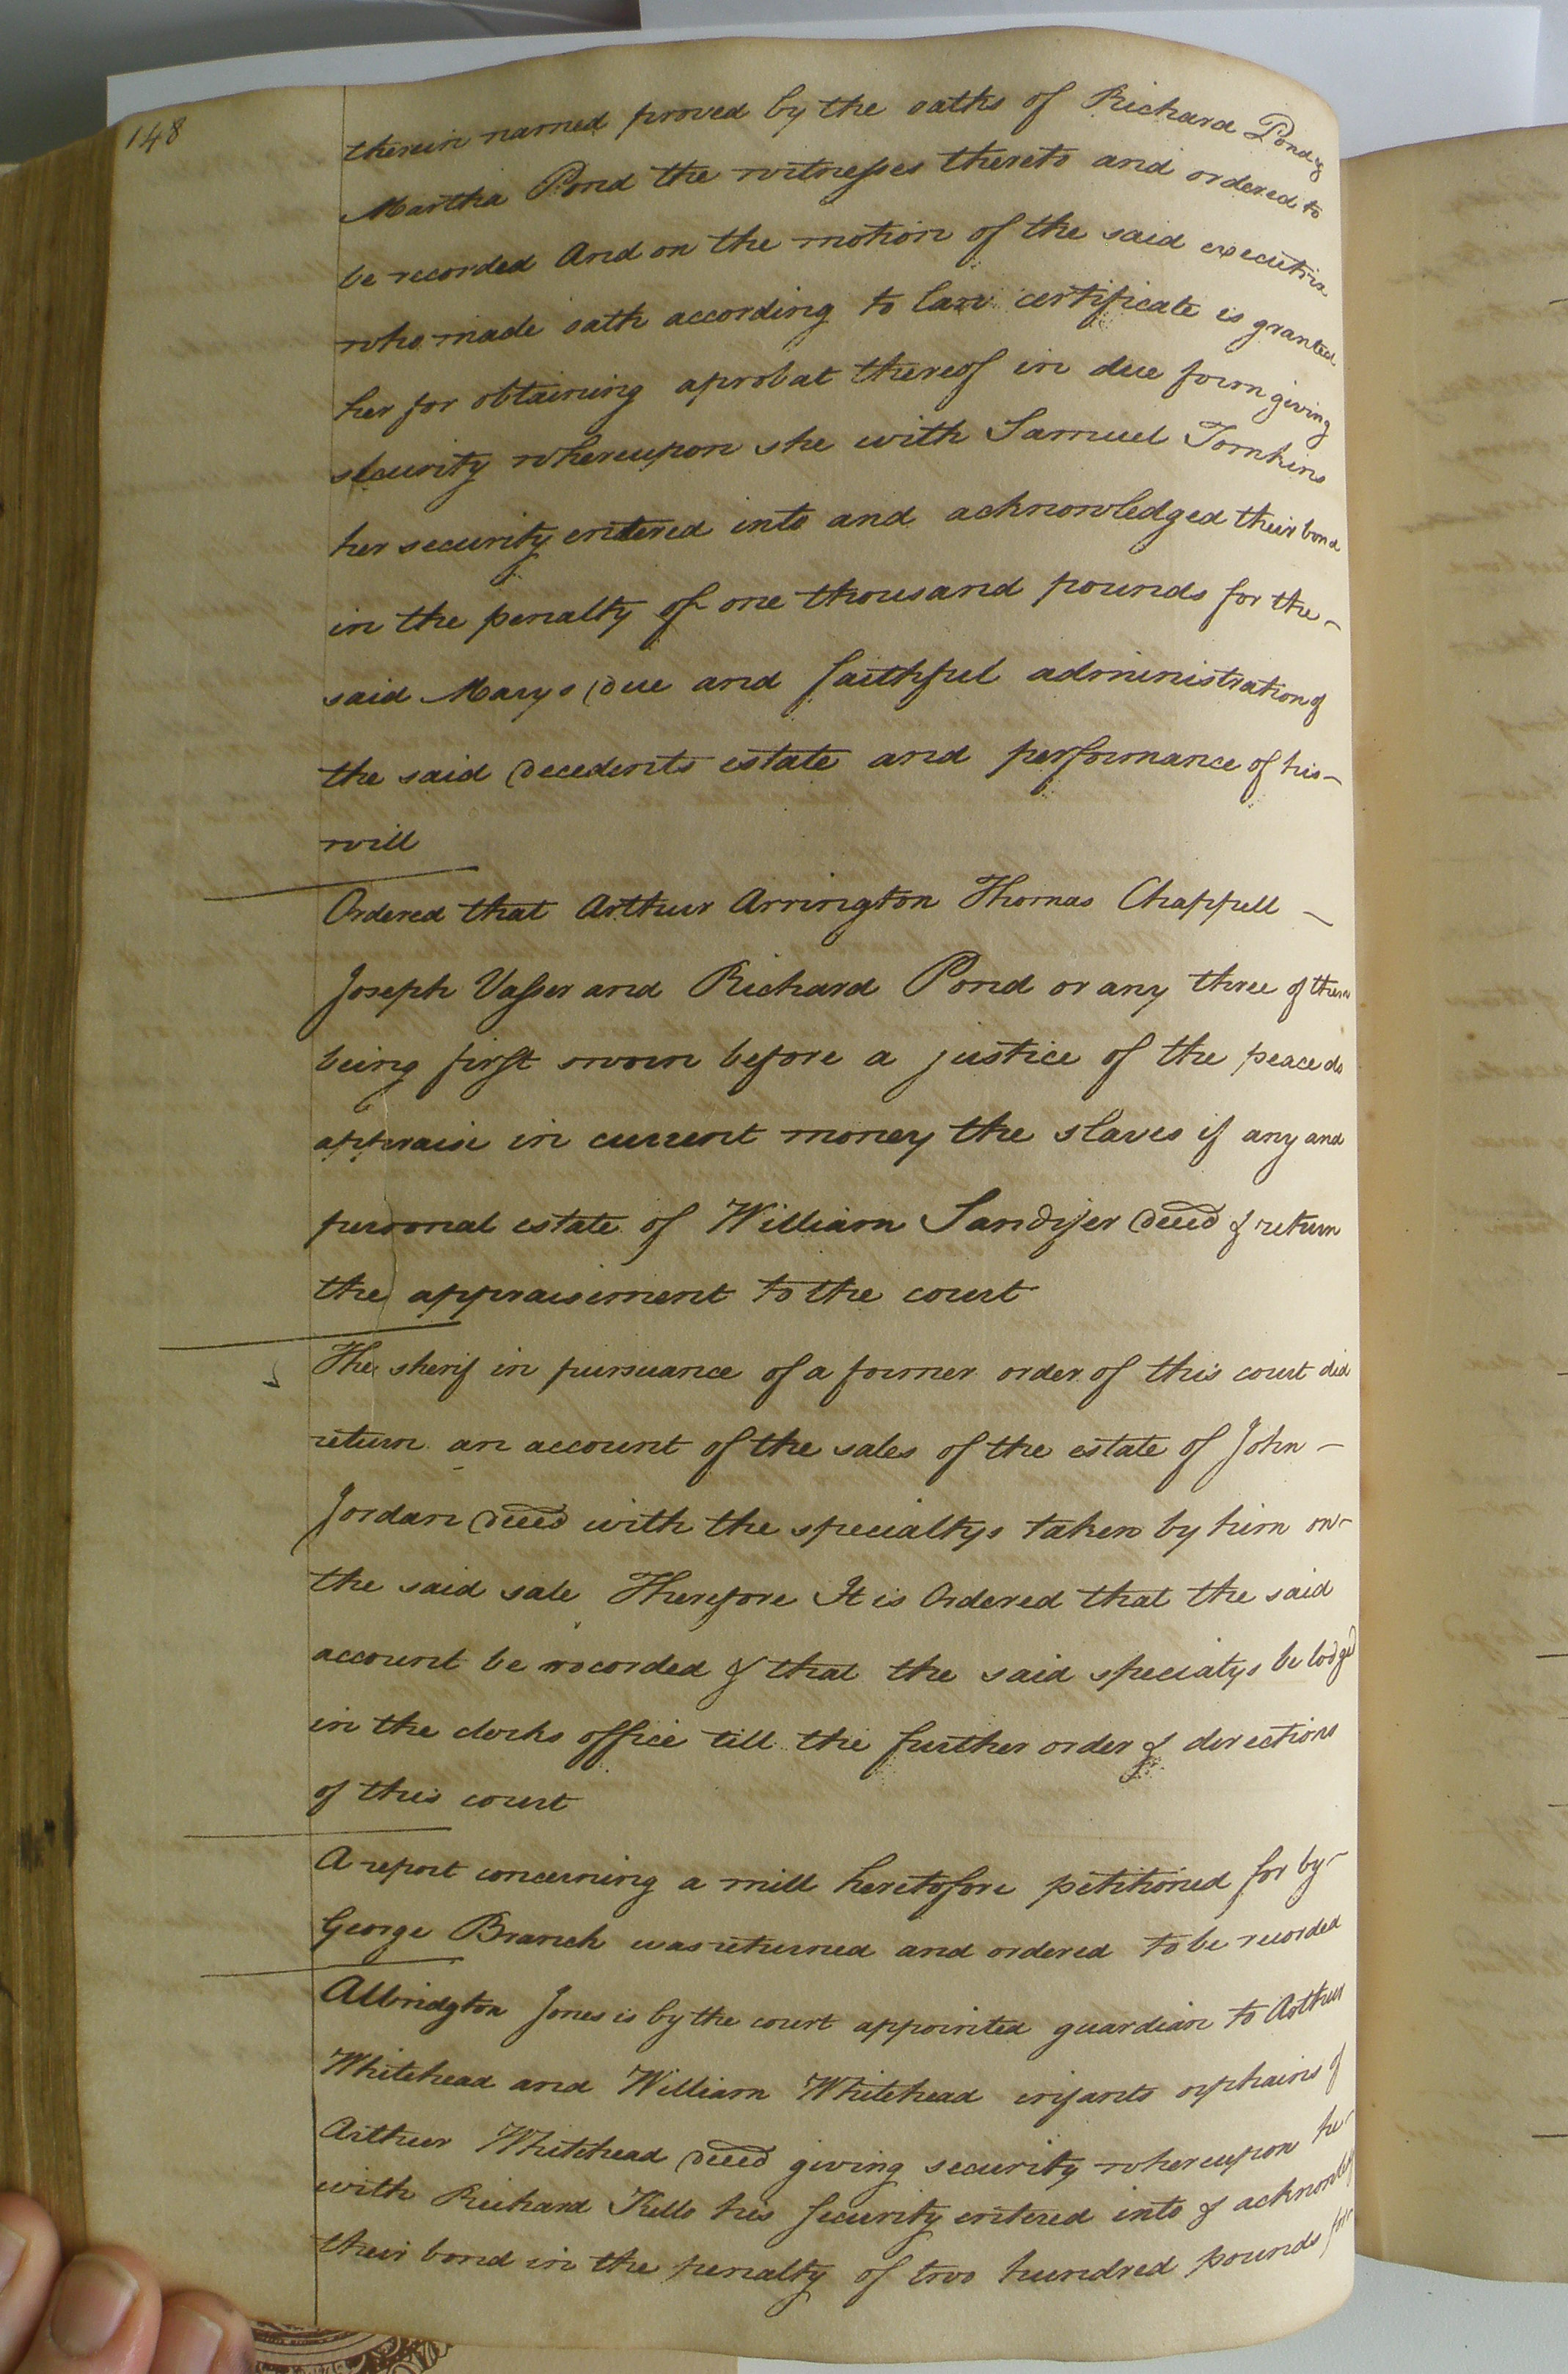 148
therein named proved by the oaths of Richard Pond &
Martha Pond the witnesses thereto and ordered to
be recorded And on the motion of the said executrix
who made oath according to law certificate is granted
her for obtaining a probat thereof in due form giving
security whereupon she with Samuel Tomkins
her security entered into and acknowledged their bond
in the penalty of one thousand pounds for the -
said Marys due and faithful administration of
the said decedents estate and performance of his -
will
Ordered that Arthur Arrington Thomas Chappell -
Joseph Vasser and Richard Pond or any three of them
being first sworn before a justice of the peace do
appraise in current money the slaves if any and
personal estate of William Sandifer deced & return
the appraisement to the court
The sherif in pursuance of a former order of this court did
return an account of the sales of the estate of John -
Jordan deced with the specialtys taken by him on -
the said sale Therefore It is Ordered that the said
account be recorded & that the said specialys be lodged
in the clerks office till the further order & directions
of this court
A report concerning a mill heretofore petitioned for by -
George Branch was returned and ordered to be recorded
Albridgton Jones is by the court appointed guardian to Arthur
Whitehead and William Whitehead infants orphains of
Arthur Whitehead deced giving security whereupon he -
with Richard Kello his security entered into &
their bond in the penalty of two hundred pounds for